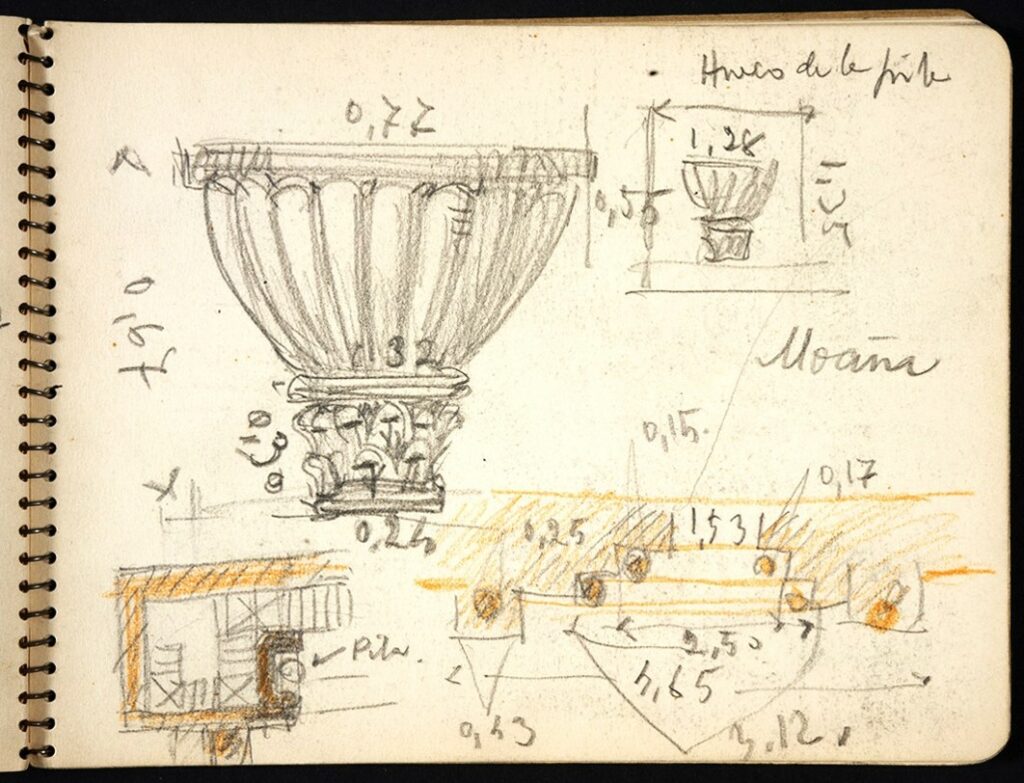 Hueco de la pila
0,77
1,28
0,55
Moaña
32
0,30
0,15.
0,17
0,24
0,25
1,53
Pila.
2,50
4,65
0,43
3,12.